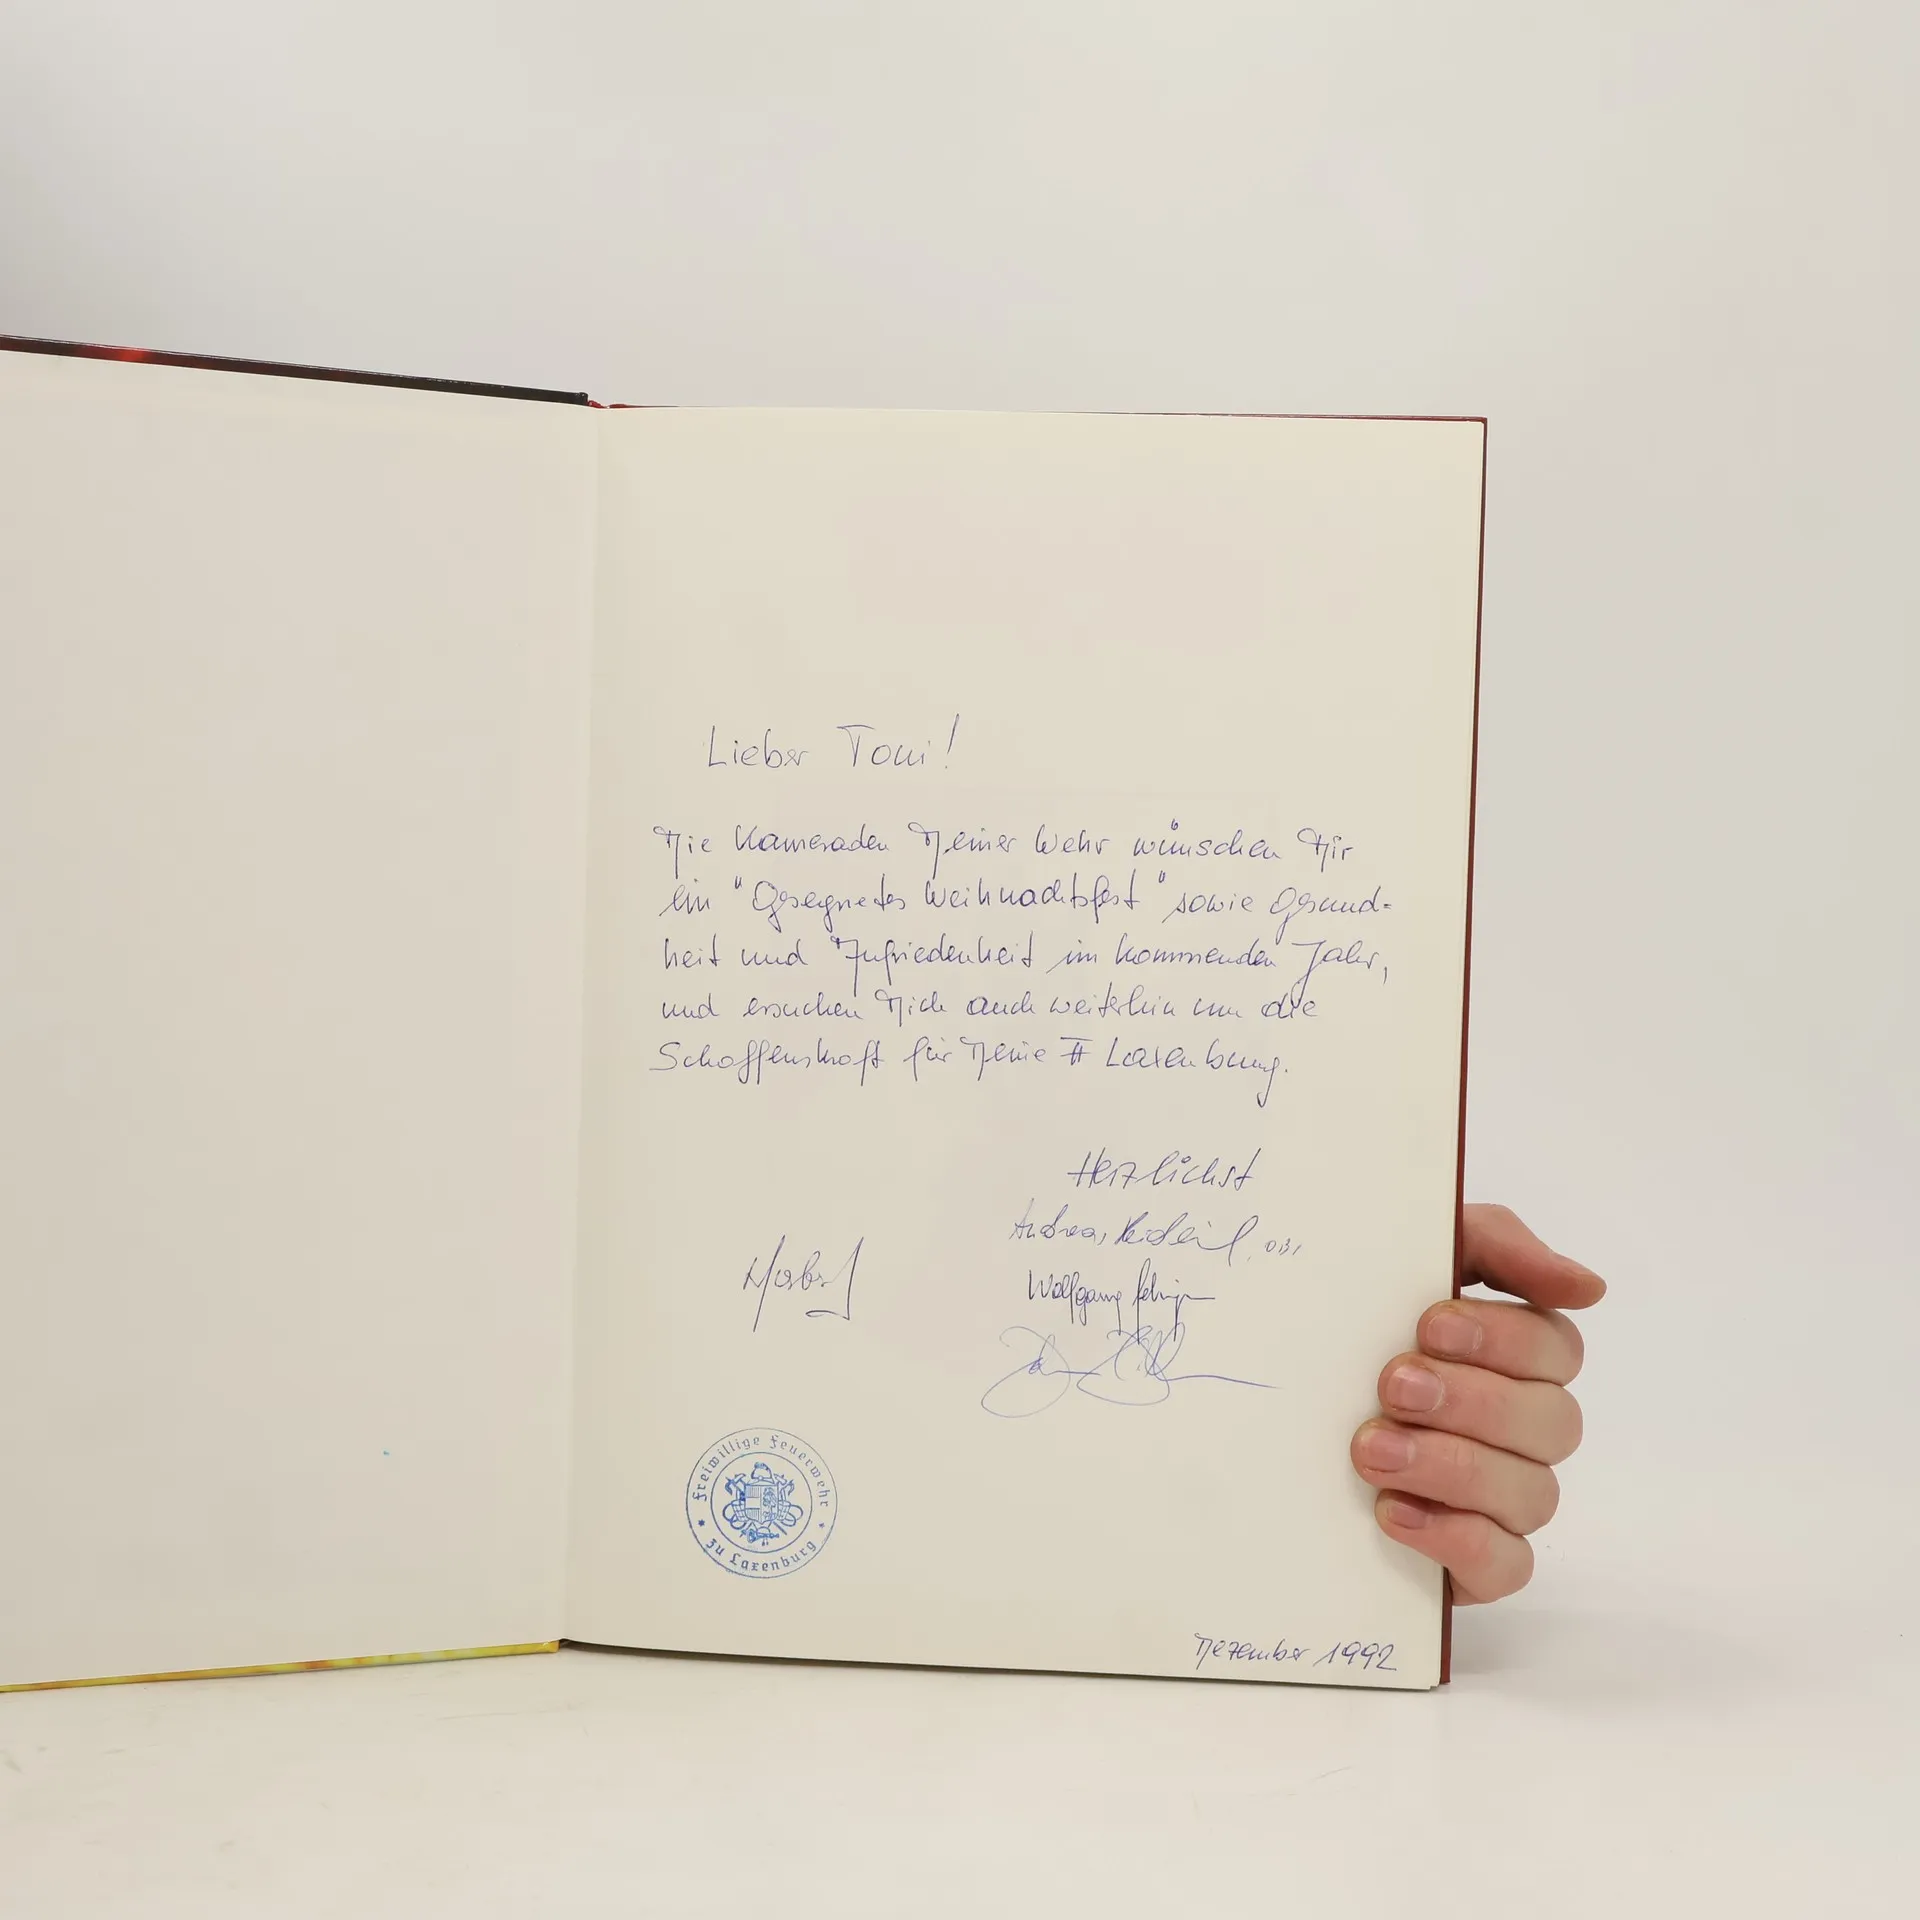 Lieber Toni!
Die Kameraden Deiner Wehr wünschen Dir
ein "Gesegnetes Weihnachtsfest" sowie Gesund=
heit und Zufriedenheit im kommenden Jahr,
und ersuchen Dich auch weiterhin um die
Schaffenskraft für Deine FF Laxenburg.
Herzlichst
Andreas OBI
Wolfgang
Freiwillige Feuerwehr
zu Laxenburg
Dezember 1992